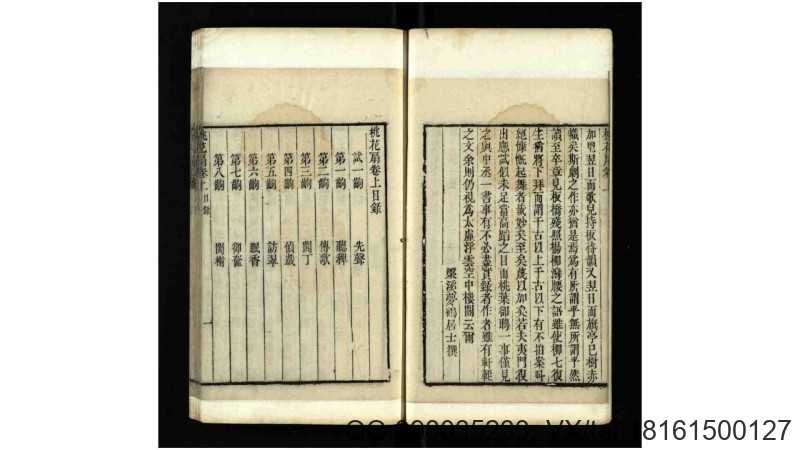 加罡翌日而歌兒持板待韻又翌日而旗亭已樹赤
幟矣斯劇之作亦猶是焉爲有所謂乎無所謂乎然
讀至卒章見板橋殘照楊柳灣腰之語雖使柳七復
生猶將下拜而謂千古以上千古以下有不拍案叫
絕慷慨起舞者哉妙矣至矣蔑以加矣若夫夷門復
出應試似未足當高蹈之目而桃葉卻聘一事僅見
之與中丞一書事有不必盡實錄者作者雖有軒輊
之文余則仍視爲太虛浮雲空中樓閣云爾
梁溪夢鶴居士撰
桃花扇卷上目錄
試一齣 先聲
第一齣 聽稗
第二齣 傳歌
第三齣 鬨丁
第四齣 偵戲
第五齣 訪翠
第六齣 眠香
第七齣 卻奩
第八齣 鬧榭
桃花扇卷上目錄
一